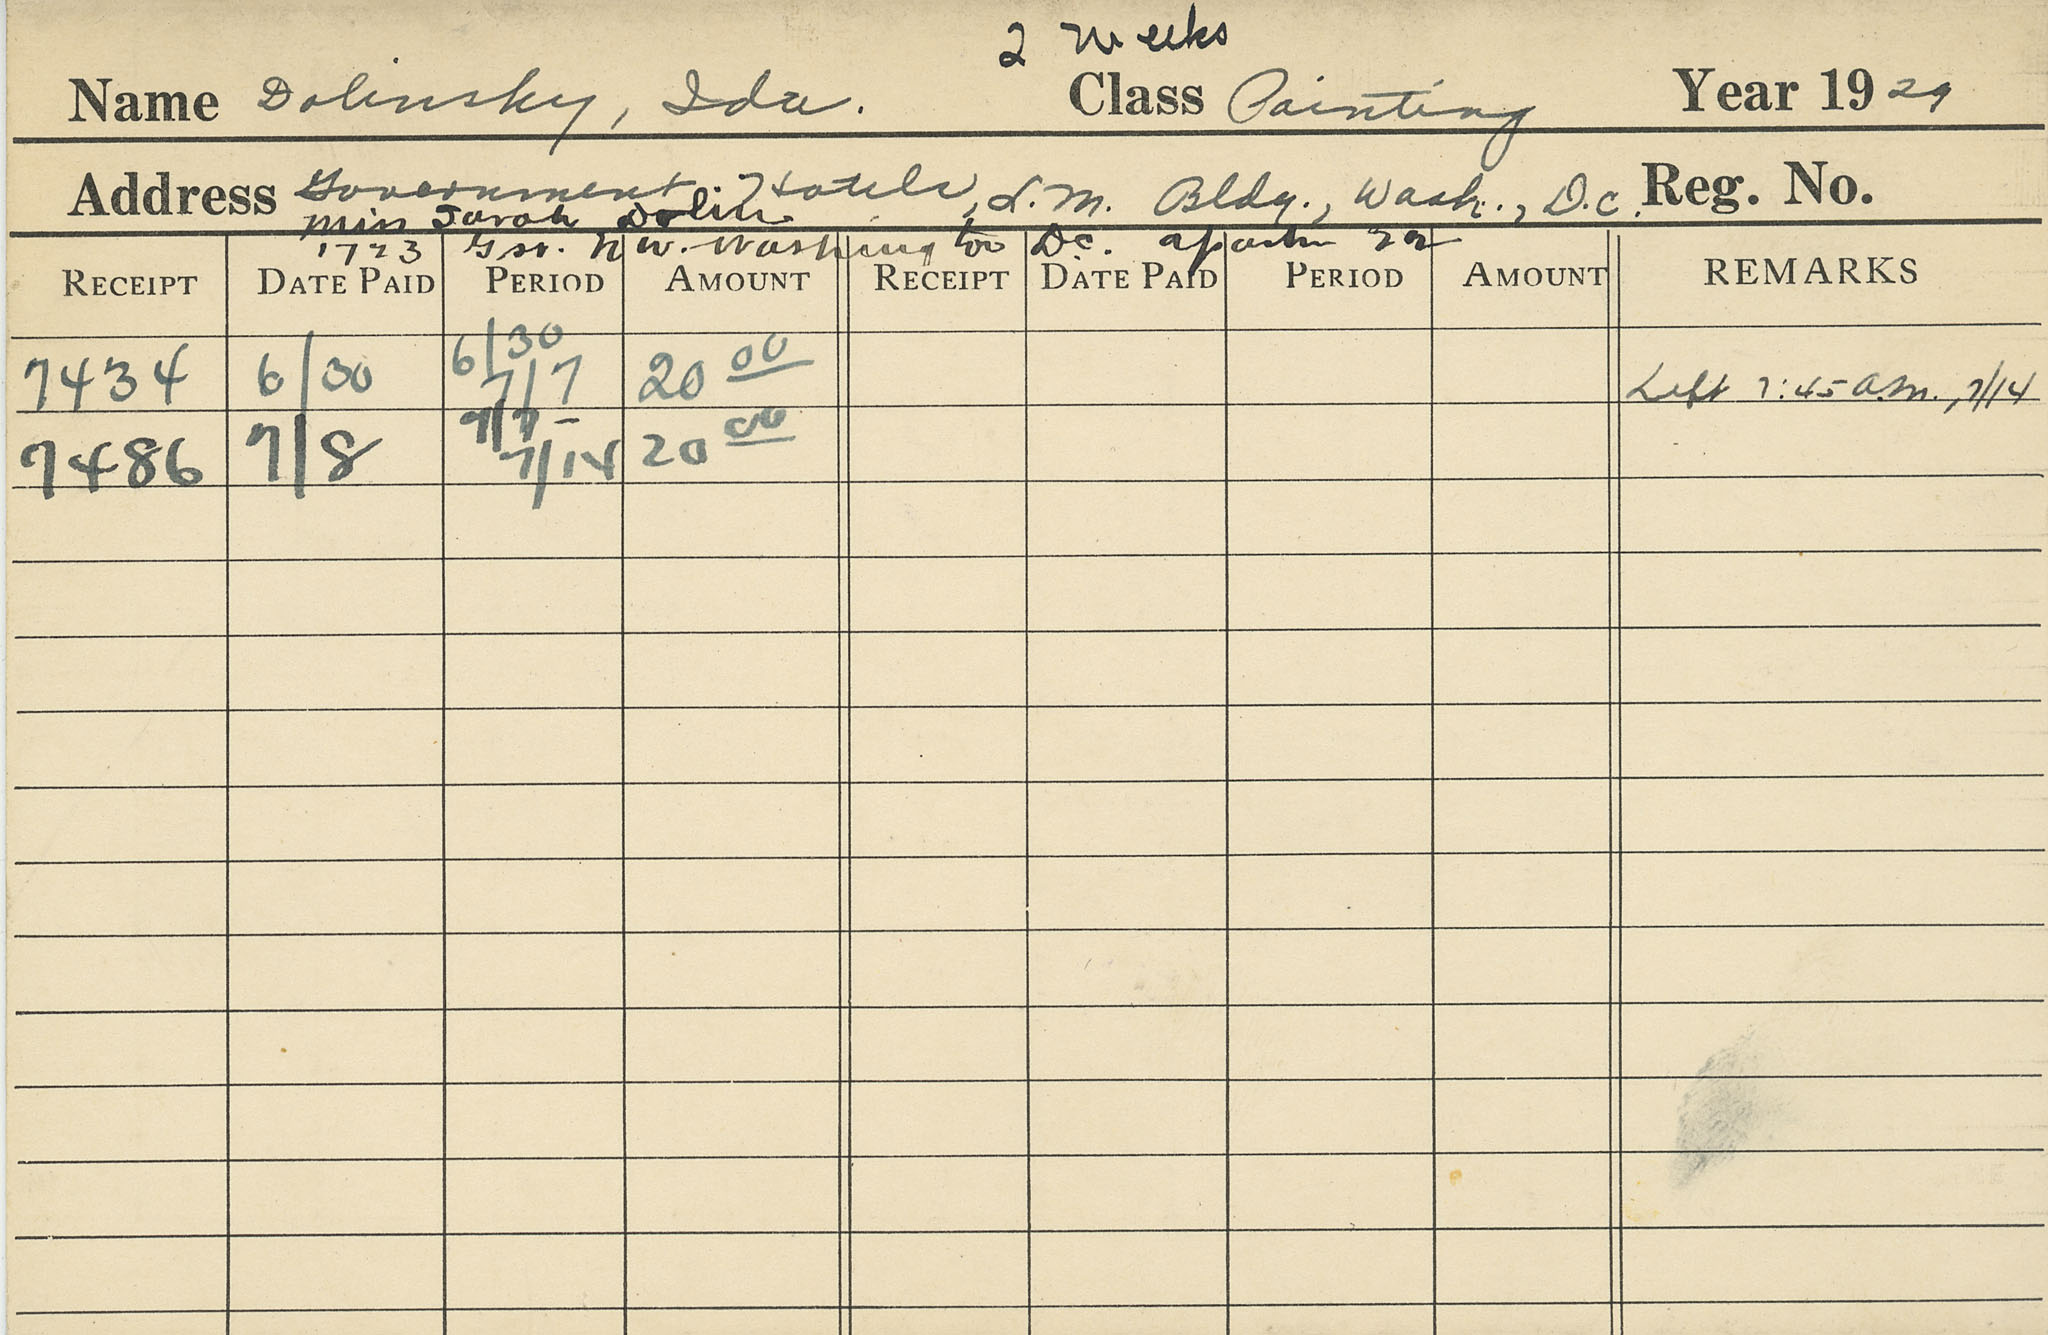 2 Weeks
Name Dolinsky, Ida. Class Painting Year 1929
Address Government Hotels, L.M. Bldg., Wash., D.C. Reg. No.
Miss Sarah Dolin
1723 G st. N.W. Washington D.C. apartm 22
RECEIPT DATE PAID PERIOD AMOUNT RECEIPT DATE PAID PERIOD AMOUNT REMARKS
7434 6/30 6/30 7/7 20 00 Left 7:45 A.M., 7/14
7486 7/8 7/7 - 7/14 20 00